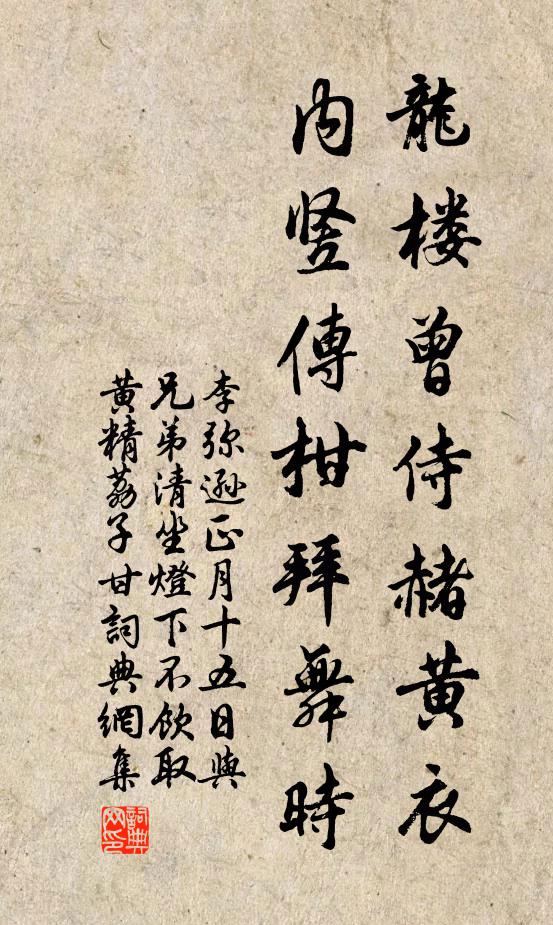 龍楼曾侍赭黃衣
内竖傳柑拜舞時
李弥遜正月十五日與
兄弟清坐燈下不飲取
黄精荔子甘詞典網集
詞典網印